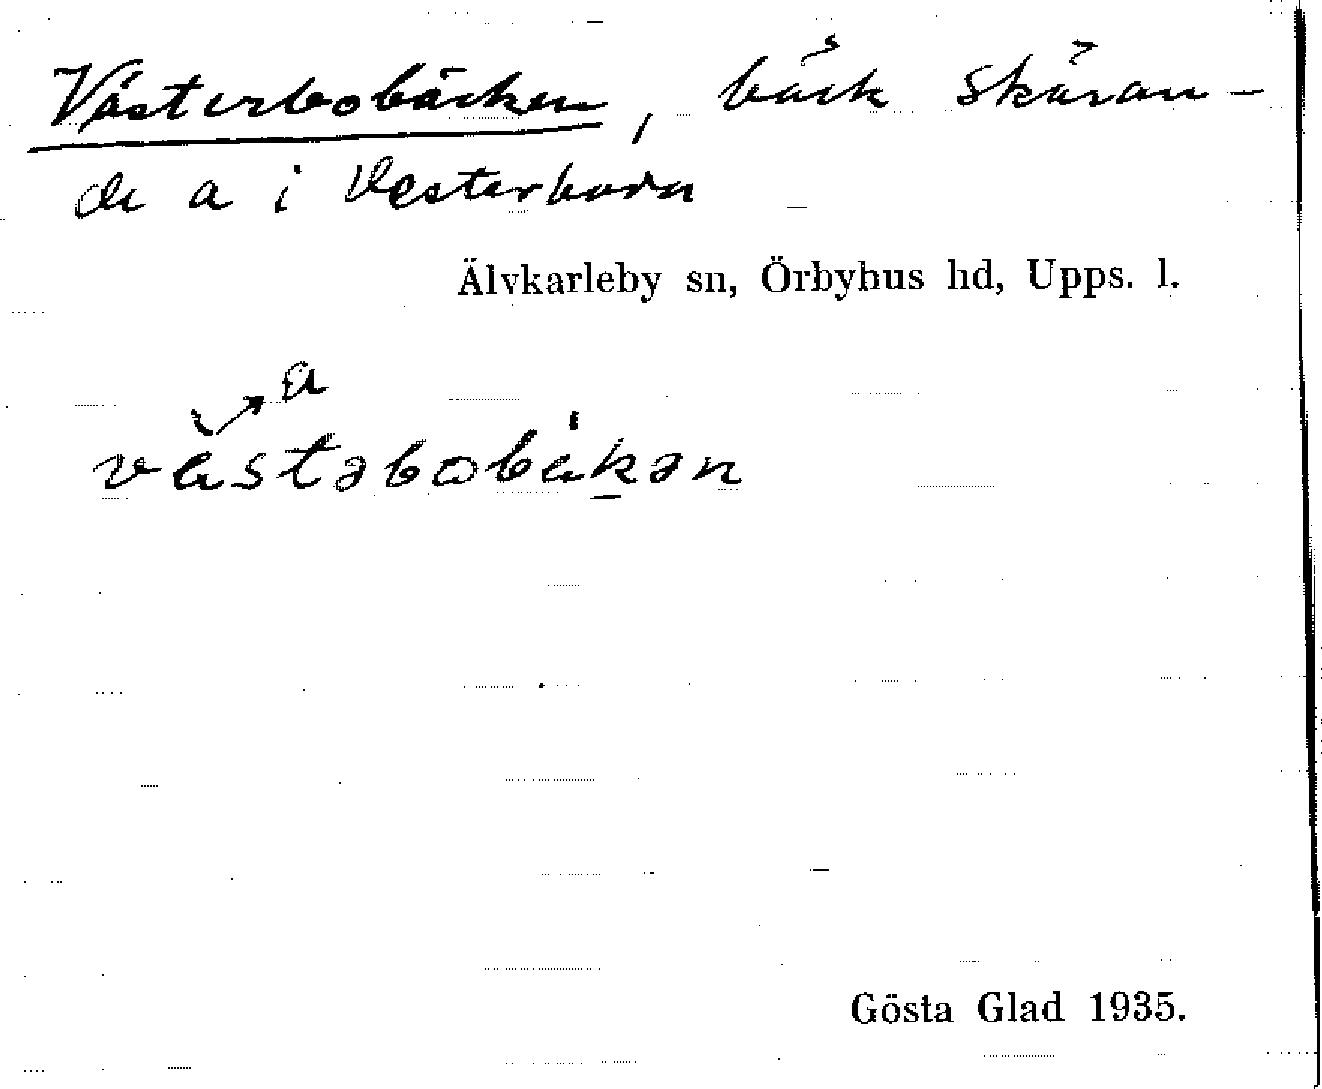 Västerbobäcken, bäck skäran-
de a i Vesterboda
Älvkarleby sn, Örbyhus hd, Upps. l.
a
västəbobäkən
Gösta Glad 1935.